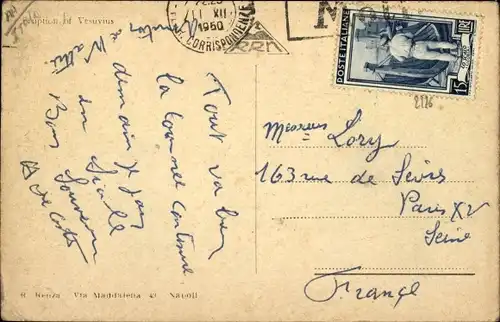 Eruption of Vesuvius
XII
1950
CORRISPONDENZE
POSTE ITALIANE
15 LIRE
2126
Tout va bien
la tournée continue
demain je pars
en Sicile
Bon Souvenir
Messieurs Lory
163 rue de Sèvres
Paris XV
Seine
France
R. Renza Via Maddalena 43 Napoli